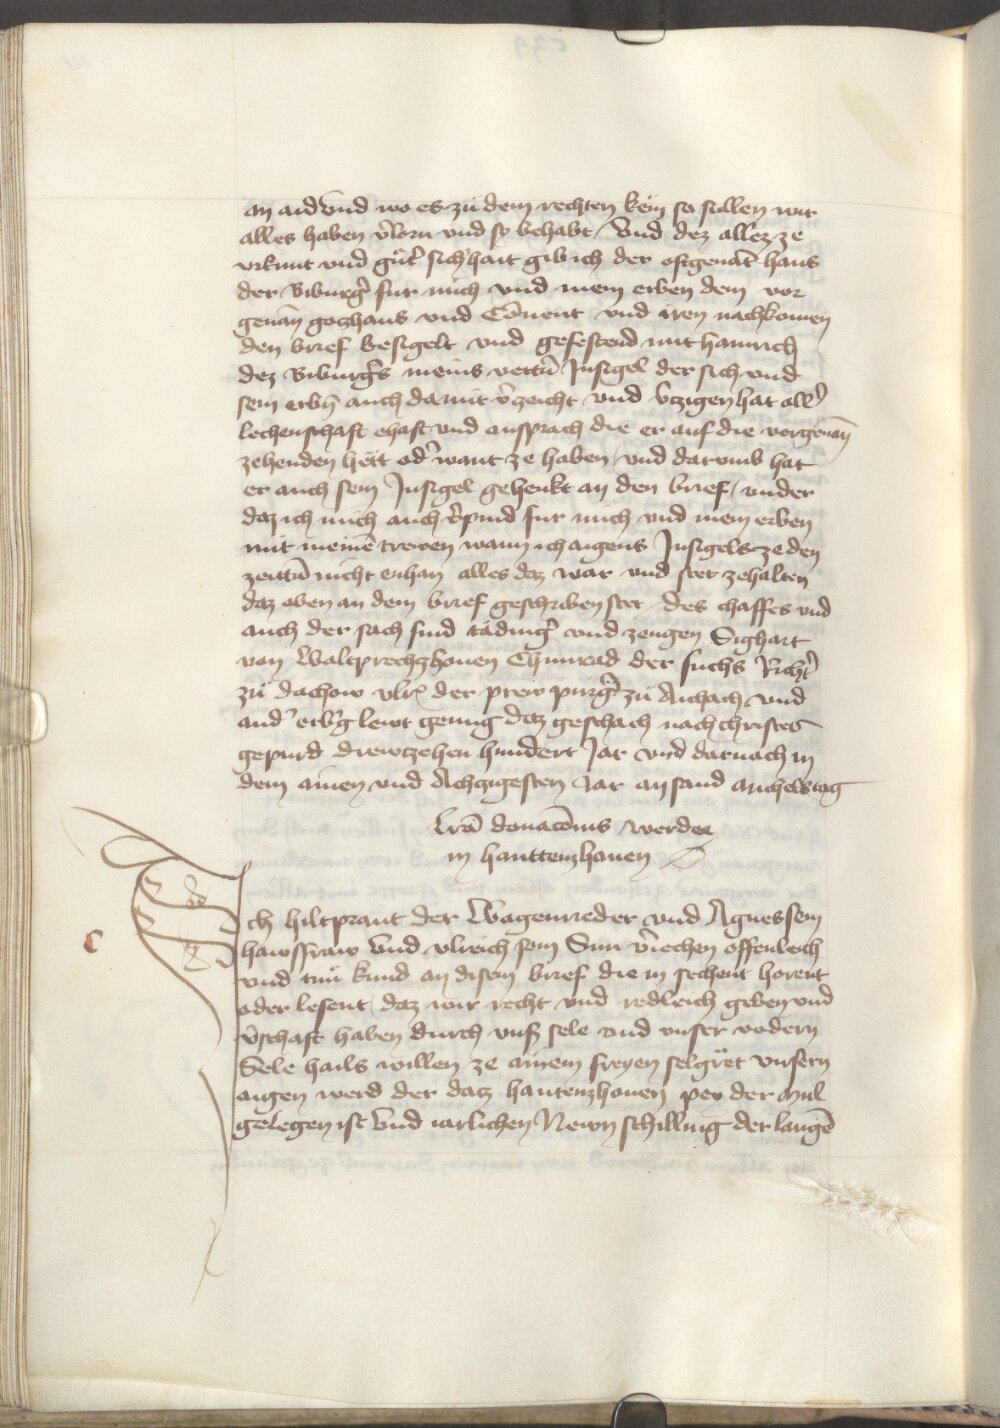 an aid vnd wo es zu dem rechten kem so sullen wir
alles haben v̉lorn vnd sy behabt / Vnd dez allez ze
vrkunt vnd gůt̉ sich̉hait gib ich der oftgenāt hans
der Biburg̉ fur mich vnd mein erben dem vor
genān gotzhaus vnd Cōuent vnd iren nachkomen
den brief besigelt vnd gefestend mit hainrich
dez Biburg̉s meins vett̉n Insigel der sich vnd
sein erbn̄ auch da mit v̉zeicht vnd v̉tzigen hat all̉
lechenschaft ehaft vnd ansprach die er auf die vorgenan̄
zehenden hett od̉ want ze haben / vnd darumb hat
er auch sein Insigel gehenkt an den brief / vnder
daz ich mich auch v̉pind fur mich vnd mein erben
mit meinē trewen wann ich aigens Insigels ze den
zeitt̉n nicht enhan alles daz war vnd stet zehalten
daz oben an dem brief geschriben stet / des chaffes vnd
auch der sach sind täding̉ vnd zeugen Sighart
von Waltprechzhouen Chunrad der fuchs Richt̉
zu dachow vlr̄ der prew purg̉ zu Aichach vnd
and̉ erb̉g lewt genug daz geschach nach christes
gepurd drewtzehen hundert Jar vnd darnach in
dem ainen vnd Achzigesten Jar an sand Michelstag
Lrā donacōnis werdee
in hauttenzhauen
Ich hiltprant der Wagenrieder vnd Agnes sein
hawsfraw Vnd vlreich sein Sun v̉iechen offenleich
vnd tun kund an disem brief die in sechent horent
oder lesent / daz wir recht vnd redleich geben vnd
v̉schaft haben durch vnß sele vnd vnser vodern
Sele hails willen ze ainem freyen selgrët vnsern
aigen werd der datz hautenzhouen pey der Mul
gelegen ist Vnd iarlichen Newn schilling der langē